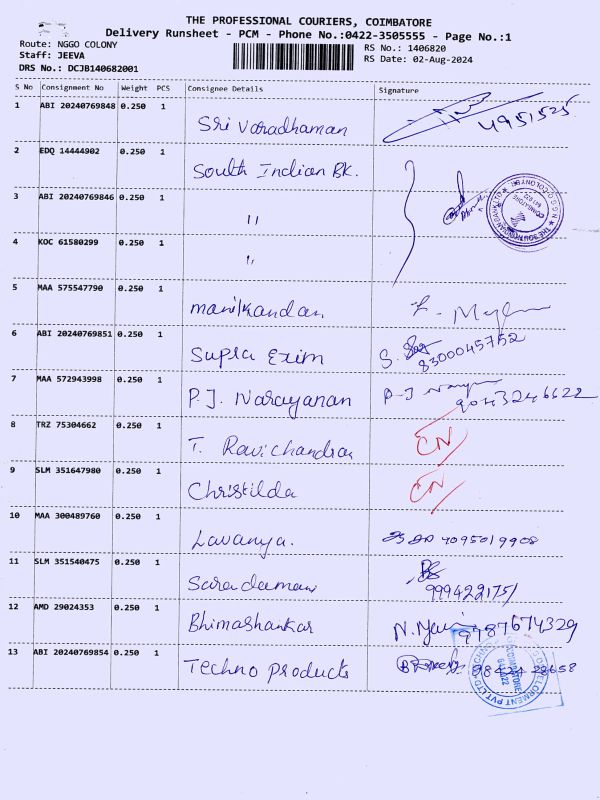 THE PROFESSIONAL COURIERS, COIMBATORE
Delivery Runsheet - PCM - Phone No.:0422-3505555 - Page No.:1
Route: NGGO COLONY
RS No.: 1406820
Staff: JEEVA
RS Date: 02-Aug-2024
DRS No.: DCJB140682001
S No Consignment No Weight PCS Consignee Details Signature
1 ABI 20240769848 0.250 1 Sri Varadhaman 4951525
2 EDQ 14444902 0.250 1 South Indian BK.
3 ABI 20240769846 0.250 1 "
4 KOC 61580299 0.250 1 "
5 MAA 575547790 0.250 1 Manikandan
6 ABI 20240769851 0.250 1 Supra Exim S. 8300045752
7 MAA 572943998 0.250 1 P.J. Narayanan P.J 9043246622
8 TRZ 75304662 0.250 1 T. Ravichandran CN
9 SLM 351647980 0.250 1 Christilda CN
10 MAA 300489760 0.250 1 Lavanya.
11 SLM 351540475 0.250 1 9994221751
12 AMD 29024353 0.250 1 Bhimashankar 9787674329
13 ABI 20240769854 0.250 1 Techno Products